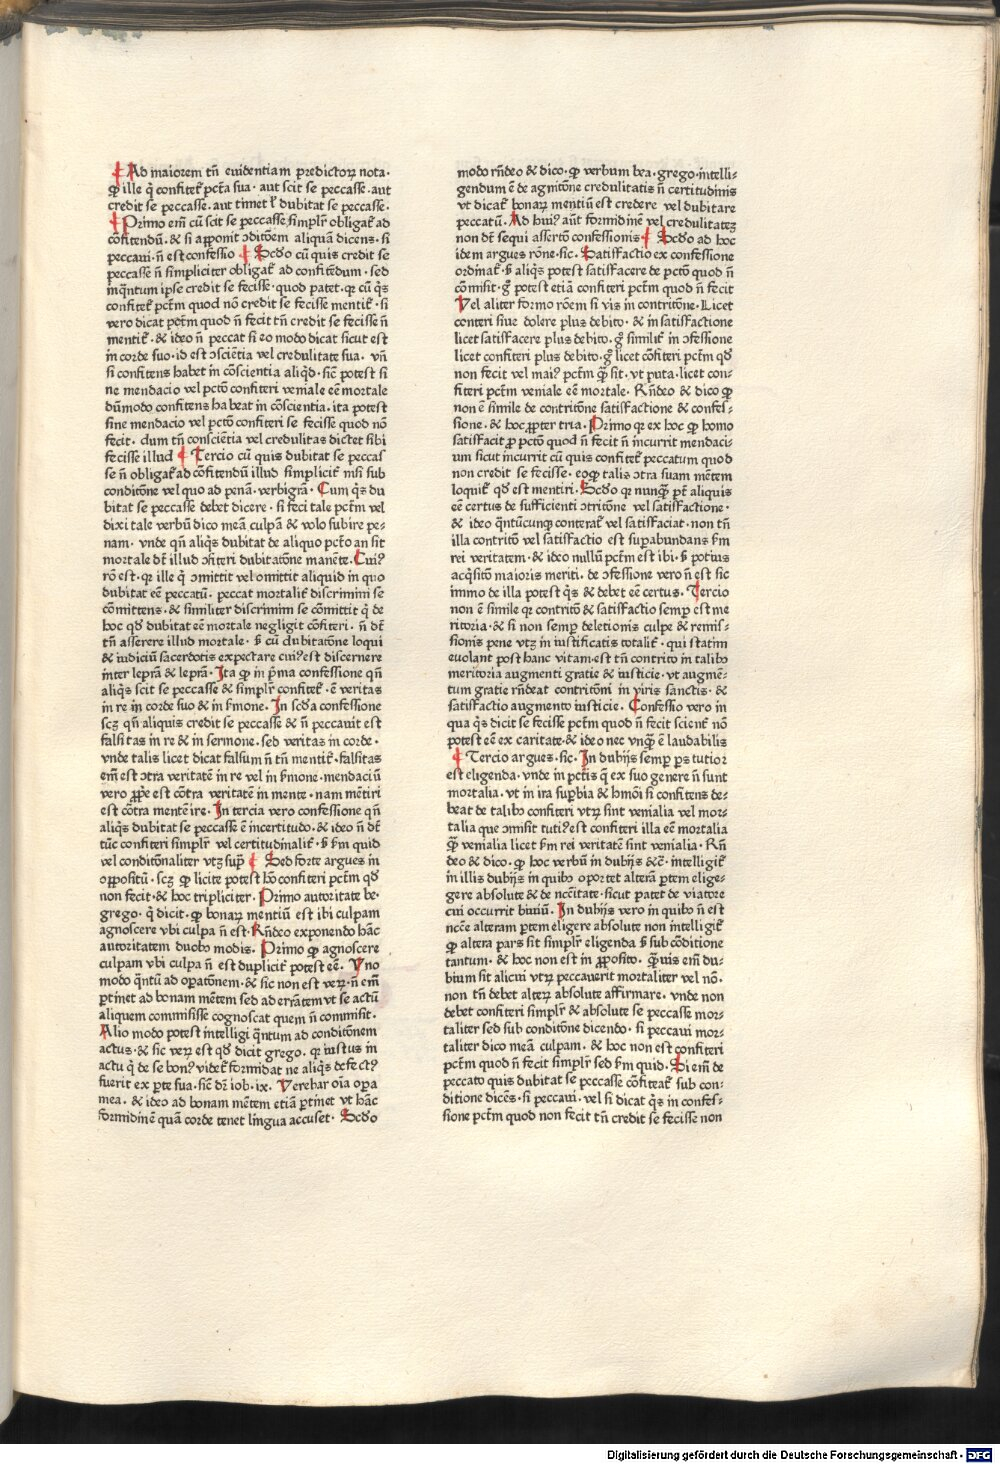 Ad maiorem tñ euidentiam predictoꝝ nota·
ꝙ ille q̇ confitet᷑ pctā sua· aut scit se peccasse· aut
credit se peccasse· aut timet ł dubitat se peccasse·
Primo em̄ cū scit se peccasse simplr̄ obligat᷑ ad
cōfitendū· & si apponit ꝯditōem aliquā dicens· si
peccaui· ñ est confessio Scdo cū quis credit se
peccasse ñ simpliciter obligat᷑ ad confitēdum· sed
inq̄ntum ipse credit se fecisse· quod patet· qr cū q̇s
confitet᷑ pctm̄ quod nō credit se fecisse mentit᷑· si
vero dicat pctm̄ quod ñ fecit tñ credit se fecisse ñ
mentit᷑· & ideo ñ peccat si eo modo dicat sicut est
in corde suo· id est ꝯsciētia vel credulitate sua· vñ
si confitens habet in cōscientia aliqd· sic̄ potest si
ne mendacio vel pctō confiteri veniale eē mortale
dūmodo confitens habeat in cōscientia· ita potest
sine mendacio vel pctō confiteri se fecisse quod nō
fecit· dum tñ consciētia vel credulitas dictet sibi
fecisse illud Tercio cū quis dubitat se peccas
se ñ obligat᷑ ad cōfitendū illud simplicit᷑ nisi sub
conditōne vel quo ad penā· verbigrā· Cum q̇s du
bitat se peccasse debet dicere· si feci tale pctm̄ vel
dixi tale verbū dico meā culpā & volo subire pe-
nam· vnde qñ aliq̇s dubitat de aliquo pctō an sit
mortale dt̄ illud ꝯfiteri dubitatōne manēte· Cuiꝰ
rō est· qr ille q̇ ꝯmittit vel omittit aliquid in quo
dubitat eē peccatū· peccat mortalit᷑ discrimini se
cōmittens· & similiter discrimini se cōmittit q̇ de
hoc qd dubitat eē mortale negligit cōfiteri· ñ dt̄
tñ asserere illud mortale· s̄ cū dubitatōne loqui
& iudiciū sacerdotis expectare cuiꝰ est discernere
inter leprā & leprā· Ita ꝙ in p̄ma confessione qñ
aliq̇s scit se peccasse & simplr̄ confitet᷑· ē veritas
in re in corde suo & in s̄mone· In scda confessione
scꝫ qñ aliquis credit se peccasse & ñ peccauit est
falsitas in re & in sermone· sed veritas in corde·
vnde talis licet dicat falsum ñ tñ mentit᷑· falsitas
em̄ est ꝯtra veritatē in re vel in s̄mone· mendaciū
vero ꝓpe est cōtra veritatē in mente· nam mētiri
est cōtra mentē ire· In tercia vero confessione qñ
aliq̇s dubitat se peccasse ē incertitudo· & ideo ñ dt̄
tūc confiteri simplr̄ vel certitudinalit᷑· s̄ s̄m quid
vel conditōnaliter vtꝫ supͣ Sed forte argues in
oppositū· scꝫ ꝙ licite potest hō confiteri pctm̄ qd
non fecit· & hoc tripliciter· Primo autoritate be·
grego· q̇ dicit· ꝙ bonaꝝ mentiū est ibi culpam
agnoscere vbi culpa ñ est· Rñdeo exponendo hāc
autoritatem duobꝰ modis· Primo ꝙ agnoscere
culpam vbi culpa ñ est duplicit᷑ potest eē· Vno
modo q̄ntū ad opatōnem· & sic non est veꝝ· ñ em̄
ptinet ad bonam mētem sed ad errātem vt se actū
aliquem commisisse cognoscat quem ñ commisit·
Alio modo potest intelligi q̄ntum ad conditōnem
actus· & sic veꝝ est qd dicit grego· qr iustus in
actu q̇ de se bonꝰ videt᷑ formidat ne aliq̇s defectꝰ
fuerit ex pte sua· sic̄ dz̄ iob· ix· Verebar oīa opa
mea· & ideo ad bonam mētem etiā ptinet vt hāc
formidinē quā corde tenet lingua accuset· Scdo
modo rñdeo & dico· ꝙ verbum bea· grego· intelli-
gendum ē de agnitōne credulitatis ñ certitudinis
vt dicat᷑ bonaꝝ mentiū est credere vel dubitare
peccatū· Ad huiꝰ aūt formidinē vel credulitateꝫ
non dt̄ sequi assertō confessionis Scdo ad hoc
idem argues rōne· sic· Satisfactio ex confessione
ordinat᷑· s̄ aliq̇s potest satisfacere de pctō quod ñ
cōmisit· g̊ potest etiā confiteri pctm̄ quod ñ fecit
Vel aliter formo rōem si vis in contritōne· Licet
conteri siue dolere plus debito· & in satisfactione
licet satisfacere plus debito· g̊ similit᷑ in ꝯfessione
licet confiteri plus debito· g̊ licet cōfiteri pctm̄ qd
non fecit vel maiꝰ pctm̄ ꝙ sit· vt puta· licet con-
fiteri pctm̄ veniale eē mortale· Rñdeo & dico ꝙ
non ē simile de contritōne satisfactione & confes-
sione· & hoc ꝓpter tria· Primo qr ex hoc ꝙ homo
satisfacit ꝓ pctō quod ñ fecit ñ incurrit mendaci-
um sicut incurrit cū quis confitet᷑ peccatum quod
non credit se fecisse· eoꝙ talis ꝯtra suam mētem
loquit᷑ qd est mentiri· Scdo qr nunq̄ pt̄ aliquis
eē certus de sufficienti ꝯtritōne vel satisfactione·
& ideo q̄ntūcunqꝫ conterat᷑ vel satisfaciat· non tñ
illa contritō vel satisfactio est supabundans s̄m
rei veritatem· & ideo nullū pctm̄ est ibi· s̄ potius
acq̇sitō maioris meriti· de ꝯfessione vero ñ est sic
immo de illa potest q̇s & debet eē certus· Tercio
non ē simile qr contritō & satisfactio semp est me
ritoria· & si non semp deletionis culpe & remis-
sionis pene vtꝫ in iustificatis totalit᷑· qui statim
euolant post hanc vitam· est tñ contrito in talibꝰ
meritoria augmenti gratie & iusticie· vt augmē-
tum gratie rñdeat contritōni in viris sanctis· &
satisfactio augmento iusticie· Confessio vero in
qua q̇s dicit se fecisse pctm̄ quod ñ fecit scient᷑ nō
potest eē ex caritate· & ideo nec vnq̄ ē laudabilis
Tercio argues· sic· In dubijs semp ps tutior
est eligenda· vnde in pctis q̄ ex suo genere ñ sunt
mortalia· vt in ira supbia & hmōi si confitens de-
beat de talibꝰ confiteri vtꝝ sint venialia vel mor-
talia que ꝯmisit tutiꝰ est confiteri illa eē mortalia
ꝙ venialia licet s̄m rei veritatē sint venialia· Rñ
deo & dico· ꝙ hoc verbū in dubijs &c̄· intelligit᷑
in illis dubijs in quibꝰ oportet alterā ptem elige-
gere absolute & de nc̄citate· sicut patet de viatore
cui occurrit biuiū· In dubijs vero in quibꝰ ñ est
nc̄ce alteram ptem eligere absolute non intelligit᷑
ꝙ altera pars sit simplr̄ eligenda s̄ sub cōditione
tantum· & hoc non est in ꝓposito· q̄uis em̄ du-
bium sit alicui vtꝝ peccauerit mortaliter vel nō·
non tñ debet alteꝝ absolute affirmare· vnde non
debet confiteri simplr̄ & absolute se peccasse mor-
taliter sed sub conditōne dicendo· si peccaui mor-
taliter dico meā culpam· & hoc non est confiteri
pctm̄ quod ñ fecit simplr̄ sed s̄m quid· Si em̄ de
peccato quis dubitat se peccasse cōfiteat᷑ sub con-
ditione dicēs· si peccaui· vel si dicat q̇s in confes-
sione pctm̄ quod non fecit tñ credit se fecisse non
Digitalisierung gefördert durch die Deutsche Forschungsgemeinschaft - DFG